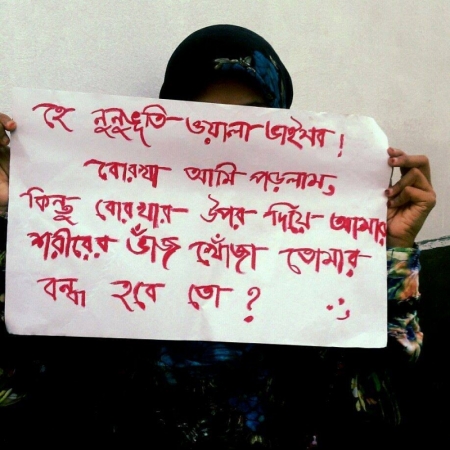 হে নুনুভূতি-ওয়ালা ভাইসব!
বোরখা আমি পড়লাম,
কিন্তু বোরখার উপর দিয়ে আমার
শরীরের ভাঁজ খোঁজা তোমার
বন্ধ হবে তো?